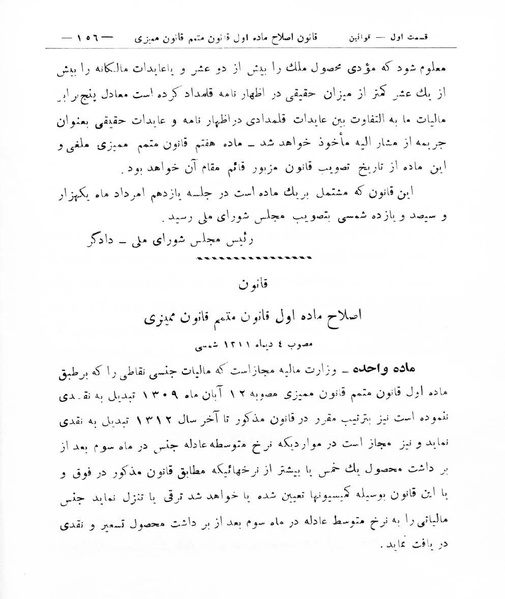 قسمت اول — قوانین قانون اصلاح ماده اول قانون متمم قانون ممیزی — ١٥٦ —
معلوم شود که مؤدی محصول ملك را بیش از دو عشر و یاعایدات مالکانه را بیش
از یك عشر کمتر از میزان حقیقی در اظهار نامه قلمداد کرده است معادل پنج‌برابر
مالیات ما به التفاوت بین عایدات قلمدادی دراظهار نامه و عایدات حقیقی بعنوان
جریمه از مشار الیه مأخوذ خواهد شد — ماده هفتم قانون متمم ممیزی ملغی و
این ماده از تاریخ تصویب قانون مزبور قائم مقام آن خواهد بود .
این قانون که مشتمل بریك ماده است در جلسه یازدهم امرداد ماه یکهزار
و سیصد و یازده شمسی بتصویب مجلس شورای ملی رسید .
رئیس مجلس شورای ملی — دادگر
قانون
اصلاح ماده اول قانون متمم قانون ممیزی
مصوب ٤ دیماه ١٣١١ شمسی
ماده واحده — وزارت مالیه مجازاست که مالیات جنسی نقاطی را که برطبق
ماده اول قانون متمم قانون ممیزی مصوبه ١٢ آبان ماه ١٣٠٩ تبدیل به نقدی
ننموده است نیز بترتیب مقرر در قانون مذکور تا آخر سال ١٣١٢ تبدیل به نقدی
نماید و نیز مجاز است در مواردیکه نرخ متوسطه عادله جنس در ماه سوم بعد از
بر داشت محصول یك خمس یا بیشتر از نرخهائیکه مطابق قانون مذکور در فوق و
یا این قانون بوسیله کمیسیونها تعیین شده یا خواهد شد ترقی یا تنزل نماید جنس
مالیاتی را به نرخ متوسط عادله در ماه سوم بعد از بر داشت محصول تسعیر و نقدی
در یافت نماید .